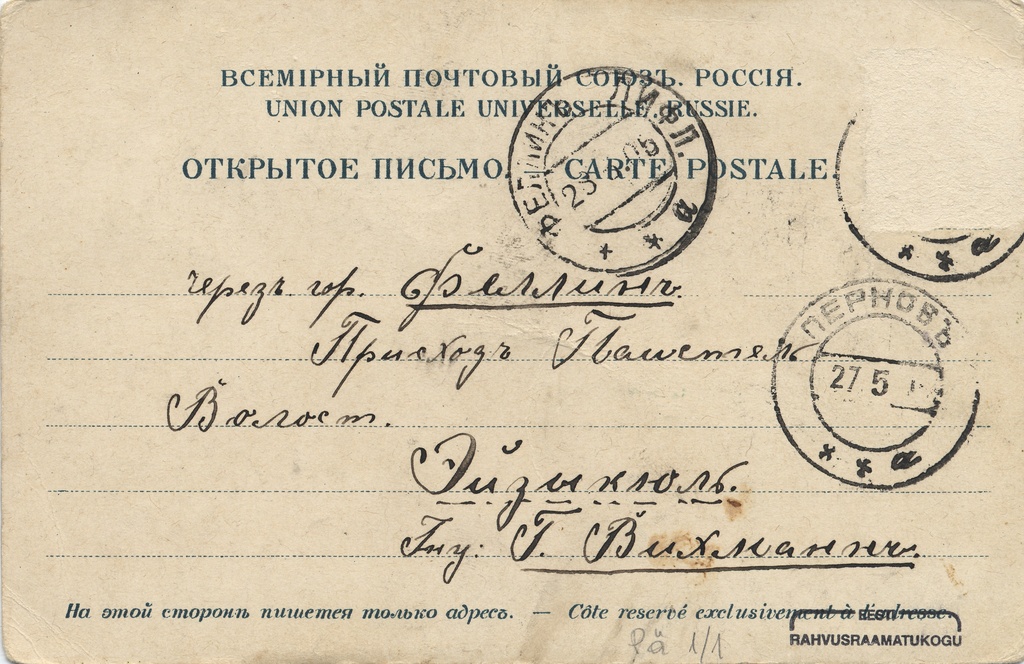 ВСЕМІРНЫЙ ПОЧТОВЫЙ СОЮЗЪ. РОССІЯ.
UNION POSTALE UNIVERSELLE. RUSSIE.
ОТКРЫТОЕ ПИСЬМО. CARTE POSTALE.
ФЕЛЛИНЪ ЛИФЛ.
23 05
* * а
* * а
черезъ гор. Феллинъ.
Приходъ Паистель
Волост.
Эйзыкюль.
Г. Вихманнъ.
ПЕРНОВЪ
27 5
* * а
На этой сторонѣ пишется только адресъ. — Côte reservé exclusivement à l'adresse.
EESTI
RAHVUSRAAMATUKOGU
Pä 1/1